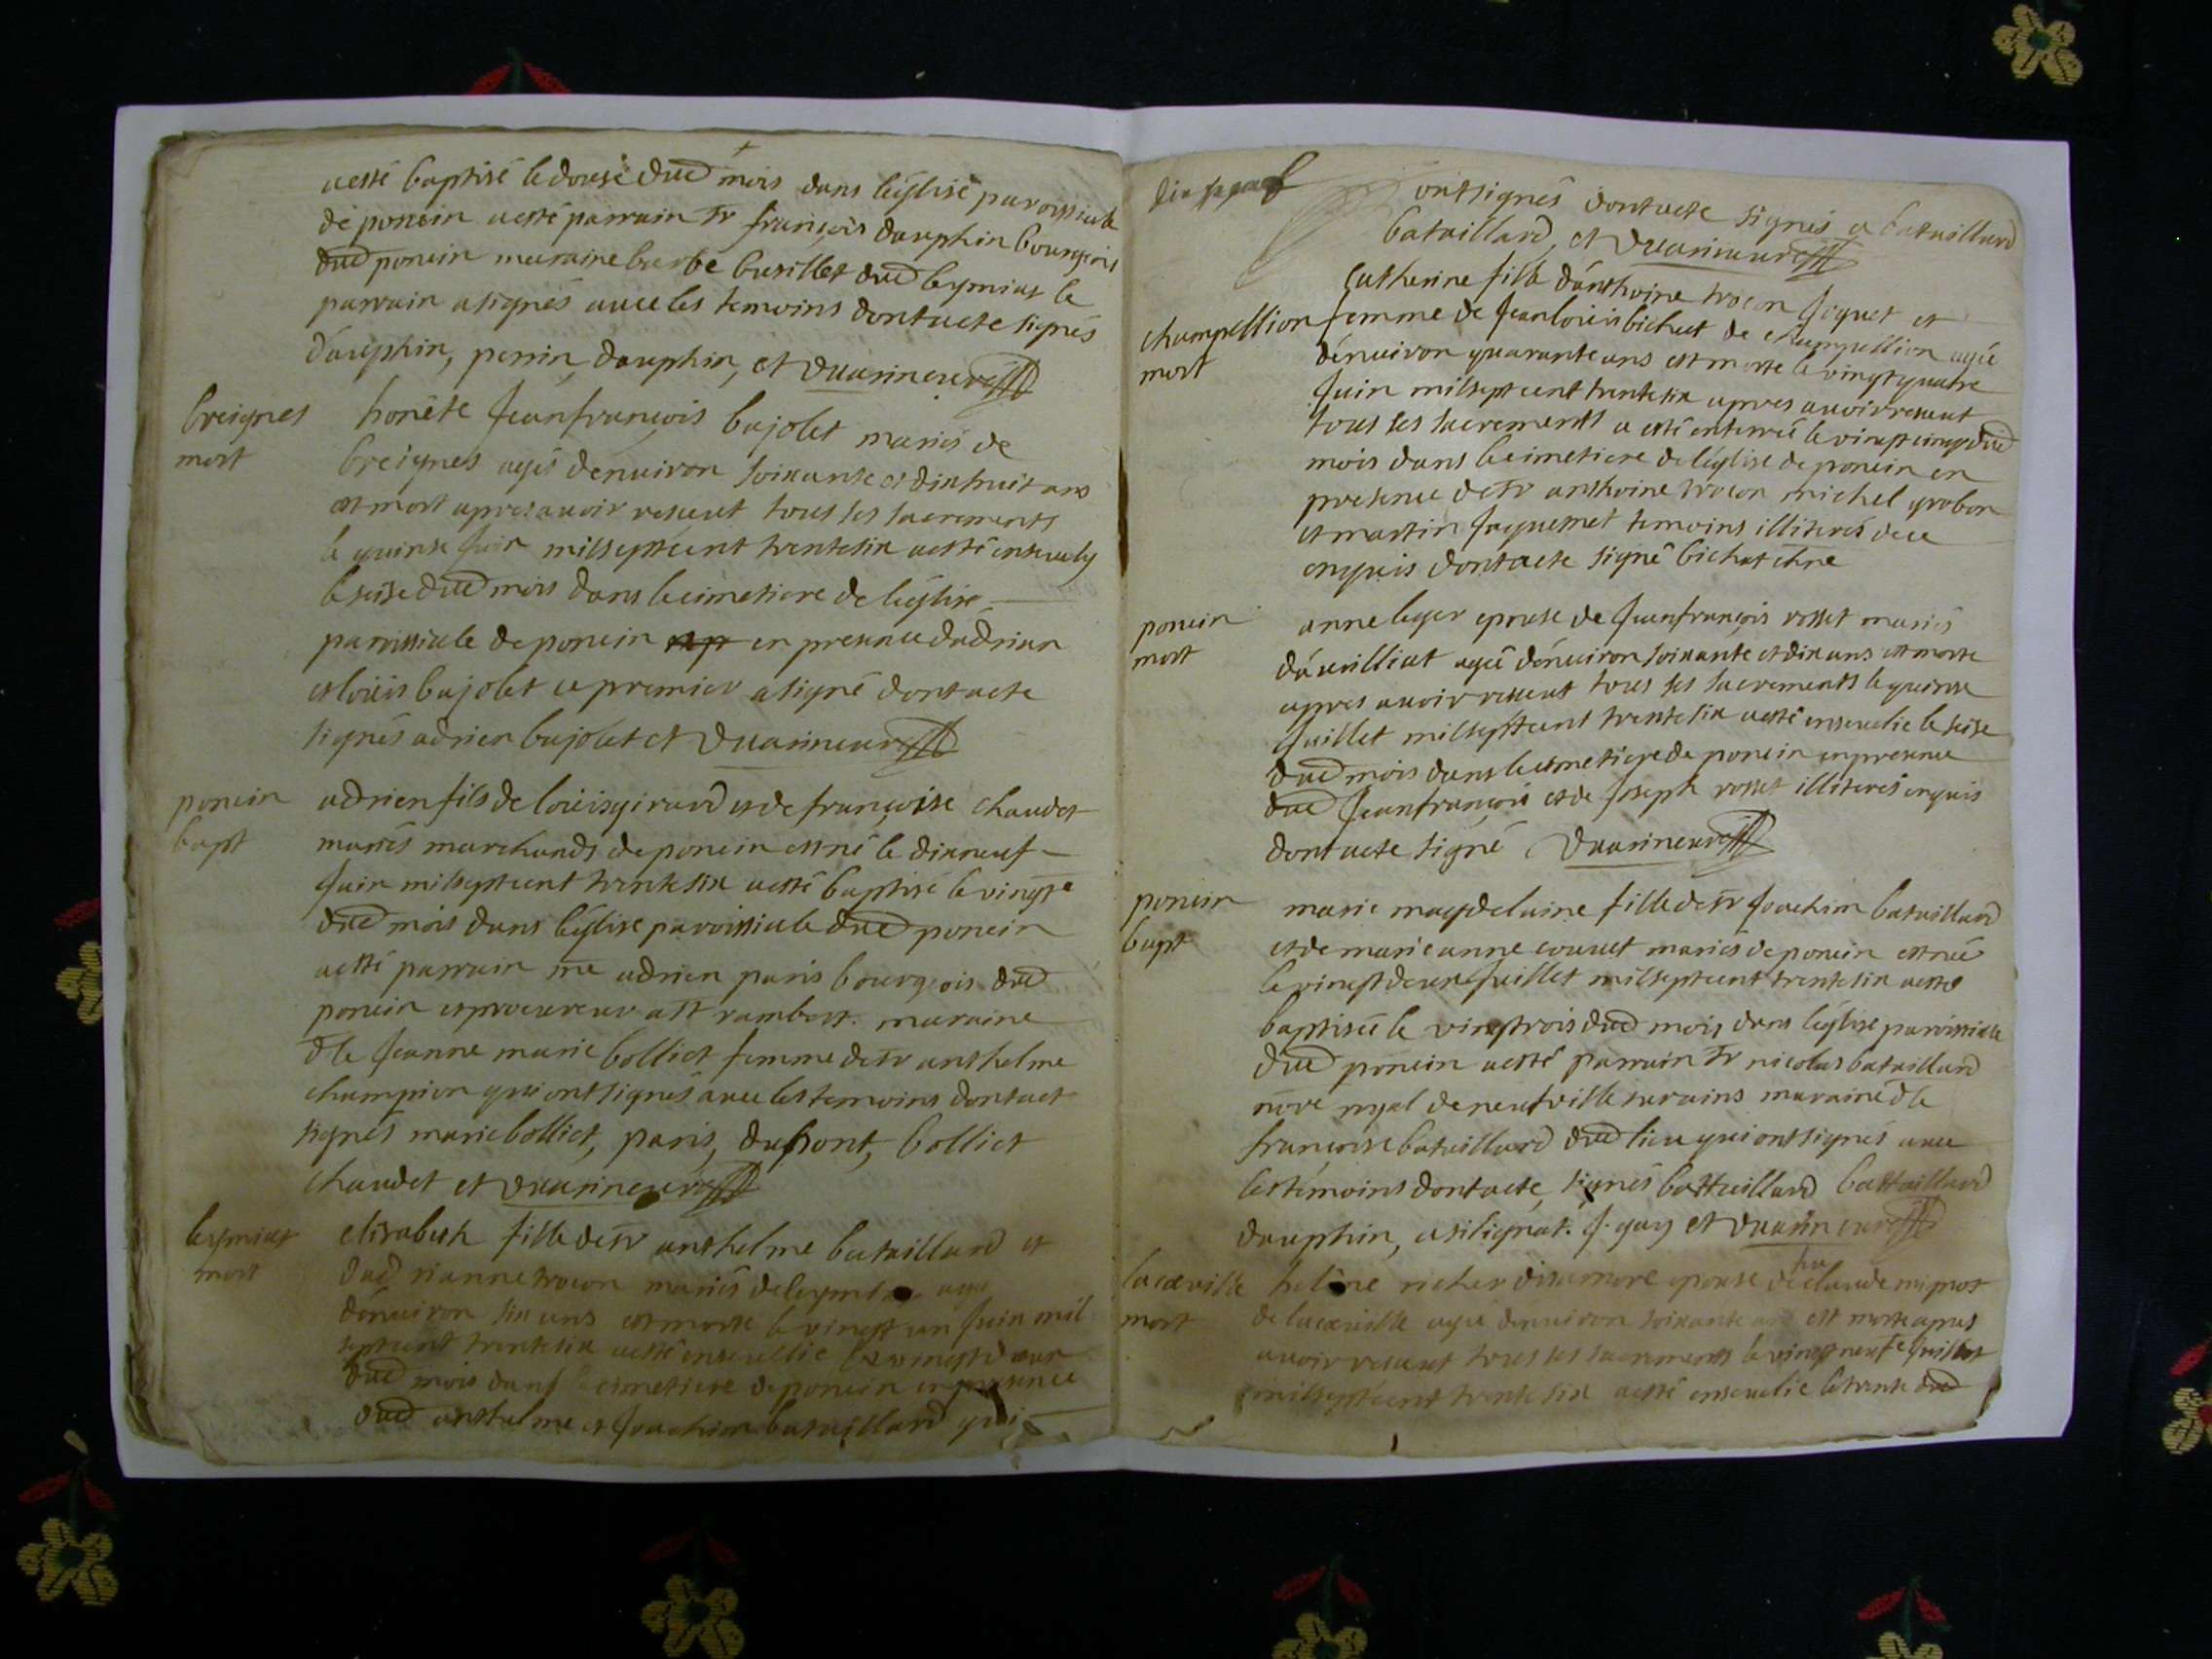 aesté baptisé ledouse dud mois dans léglise paroissiale
de poncin aesté parrain sr françois dauphin bourgeois
dud poncin maraine barbe busillet dud leymiat le
parrain asignés avec les temoins dontacte signés
dauphin, perrin, dauphin, et Duarineur
breignes
mort
honéte Jeanfrançois bajolet mariés de
breignes agés denuiron soixante et dixhuit ans
est mort apres auoir reseut tous ses sacrements
le quinse Juin milseptcent trentesix aesté enseuely
le seise dud mois dans lecimetiere de léglise
paroissiale de poncin en presence dadrien
et loüis bajolet cepremier asigné dontacte
signés adrien bajolet et Duarineur
poncin
bapt
adrien fils de loüisgirard et de françoise chaudet
mariés marchands de poncin est né le dixneuf
Juin milseptcent trentesix aesté baptisé levingt
dud mois dans léglise paroissiale dud poncin
aesté parrain me adrien paris bourgeois dud
poncin et procureur a st rambert. maraine
dlle Jeanne marie bolliet femme de sr anthelme
champion qui ont signés auec lestemoins dontact
signés mariebolliet, paris, dupont, bolliet
chaudet et Duarineur
leymiat
mort
elisabeth fille de sr anthelme bataillard et
mariés de
dénuiron six ans est morte levingt un Juin mil
septcent trentesix aesté enseuelie le vingtdeux
dud mois dans le cimetiere de poncin en presence
dud anthelme et Joachim bataillard qui
ontsignés dontacte signés a bataillard
bataillard, et Duarineur
champellion
mort
Catherine fille dánthoine trocon Jiquet et
femme de Jeanloüis bichat de champellion agée
dénuiron quarante ans est morte levingtquatre
Juin milseptcent trentesix apres auoirreseut
tous ses sacrements a esté enterrée levingtcinq dud
mois dans lecimetiere de léglise de poncin en
presence de sr anthoine trocon michel grobon
et martin Jaquemet temoins illiterés de ce
enquis dontacte signé bichat
poncin
mort
anne leger epouse de Jeanfrançois rosset mariés
dáuilliat agée dénuiron soixante et dix ans est morte
apres auoir reseut tous ses sacrements lequinse
Juillet milseptcent trentesix aesté enseuelie le seise
dud mois dans lecimetiere de poncin enpresence
dud Jeanfrançois et de Joseph rosset illiterés enquis
dontacte signé Duarineur
poncin
bapt
marie magdelaine fille de sr Joachim bataillard
et de marie anne couuet mariés de poncin est née
levingtdeux Juillet milseptcent trentesix aesté
baptisée le vingttrois dud mois dans léglise paroissialle
dud poncin aesté parrain sr nicolas bataillard
nore royal de neufville surains maraine dlle
françoise bataillard dud lieu quiontsignés auec
lestémoins dontacte, signés battaillard battaillard
dauphin, J. guy et Duarineur
mort
heléne richer epouse de feu claude mignot
de agée dénuiron soixante ans est morte apres
auoir reseut tous ses sacrements levingtneuf Juillet
milseptcent trente six aesté enseuelie letrente dud